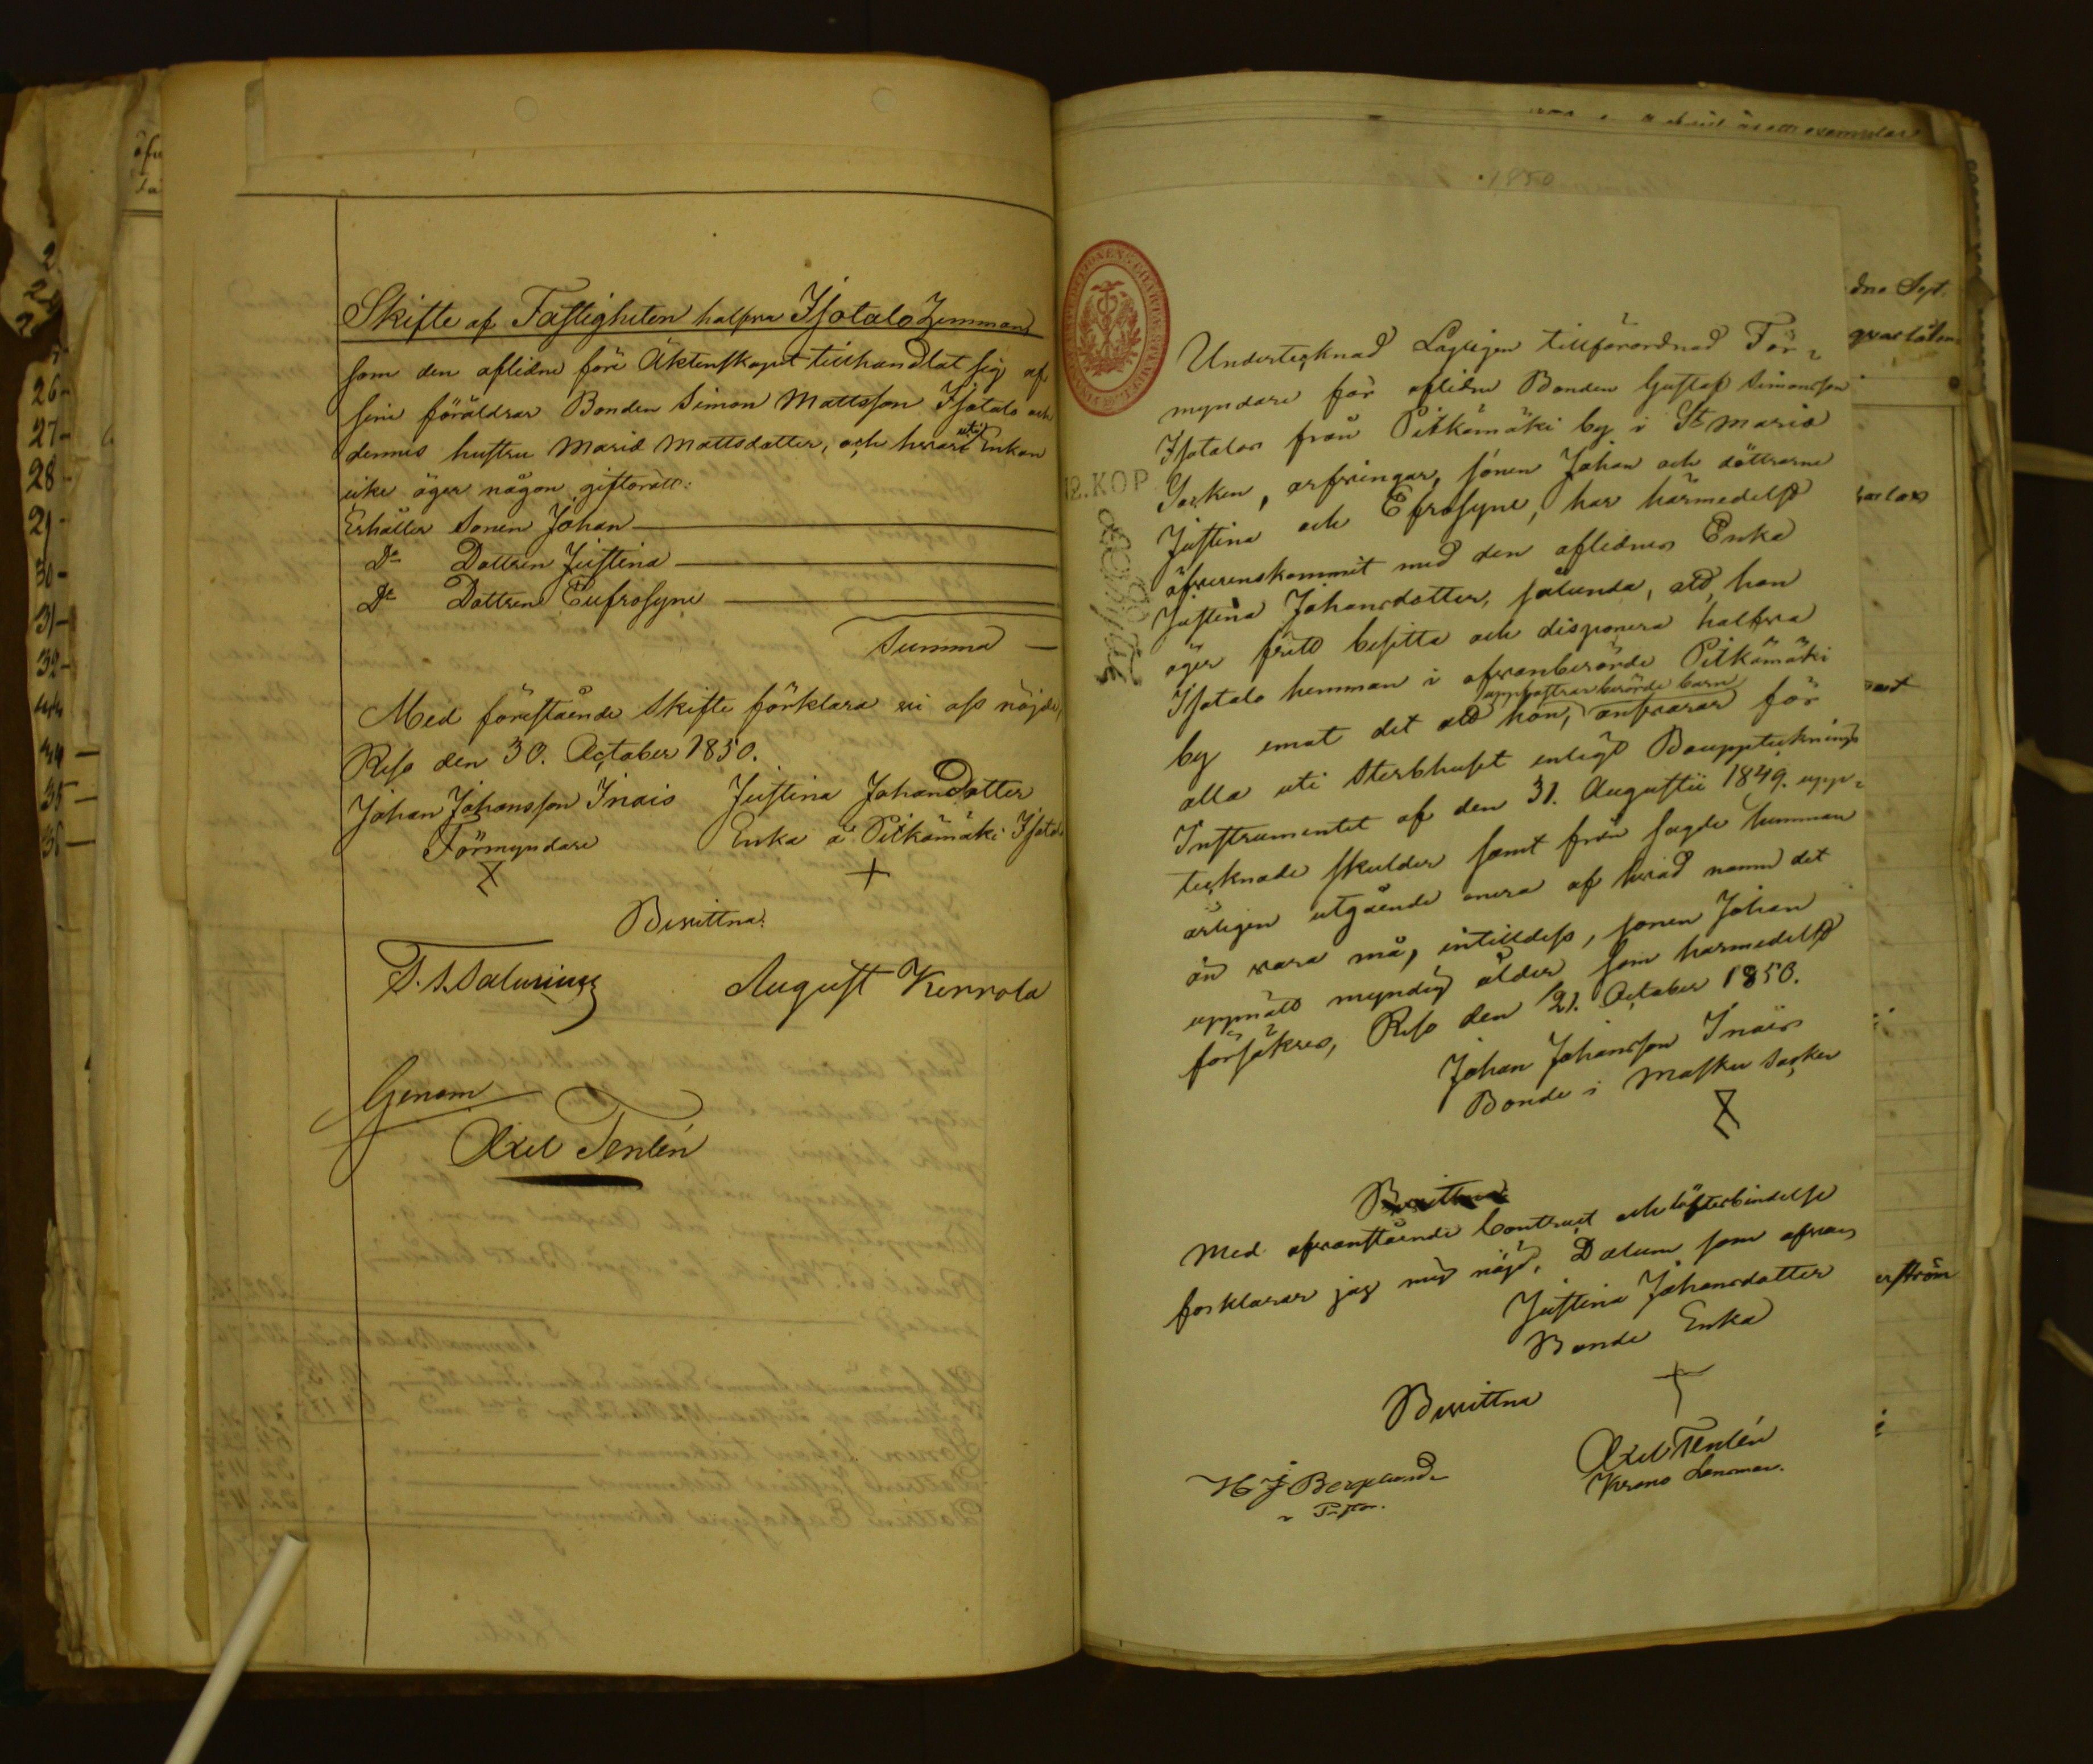 Skifte af Fastigheten halfva Isotalo Hemman
som den aflidne före Äktenskapet tillhandlat sig af
sine föräldrar Bonden Simon Mattsson Isotalo och
dennes hustru Maria Mattsdotter, och hvaruti Enkan
icke äger någon giftorätt:
Erhåller Sonen Johan
Do Dottren Justina
Do Dottren Eufrosyne
Summa
Med förestående Skifte förklara vi oss nöjde,
Reso den 30. October 1850.
Johan Johansson Inais Justina Johansdotter
Förmyndare Enka å Pitkämäki Isotalo
Bevittna:
August Kerrola
Genom
Axel Tenlén
26
27
28
29
30
31
32
34
35
36
1850
12. KOP
Undertecknad Lagligen tillförordnad För=
myndare för aflidne Bonden Gustaf Simonsson
Isotalos från Pitkämäki by i St Marie
Socken, arfvingar, sonen Johan och döttrarne
Justina och Efrosyne, har härmedelst
öfverenskommit med den aflidnes Enka
Justina Johansdotter, sålunda, att hon
äger fritt besitta och disponera halfva
Isotalo hemman i ofvanberörde Pitkämäki
by emot det att hon, uppfostrar berörde barn ansvarar för
alla uti Sterbhuset enligt Bouppteknings
Instrumentet af den 31. Augustii 1849. upp=
tecknade skulder samt från sagde hemman
årligen utgående onera af hvad namn det
än vara må, intilldess, sonen Johan
uppnått myndig ålder som härmedelst
försäkres, Reso den 21. October 1850.
Johan Johansson Inais
Bonde i Masku Socken
Bevittna
Med ofvanstående Contract och löfterbindelse
förklarar jag mig nöjd, Datum som ofvan
Justina Johansdotter
Bonde Enka
Bevittna
Axel Tenlén
Krono Länsman.